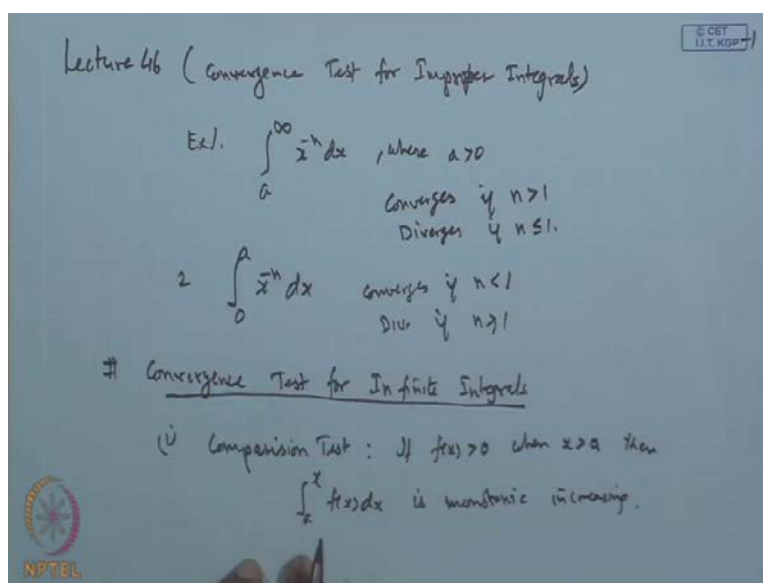 Lecture 46 (Convergence Test for Improper Integrals)
© CET
I.I.T. KGP
Ex1. ∫_a^∞ x^{-n} dx , where a>0
Converges if n>1
Diverges if n≤1.
2 ∫_0^a x^{-n} dx converges if n<1
Div. if n≥1
# Convergence Test for Infinite Integrals
(i) Comparision Test : If f(x) > 0 when x>a then
∫_a^x f(x)dx is monotonic increasing.
NPTEL